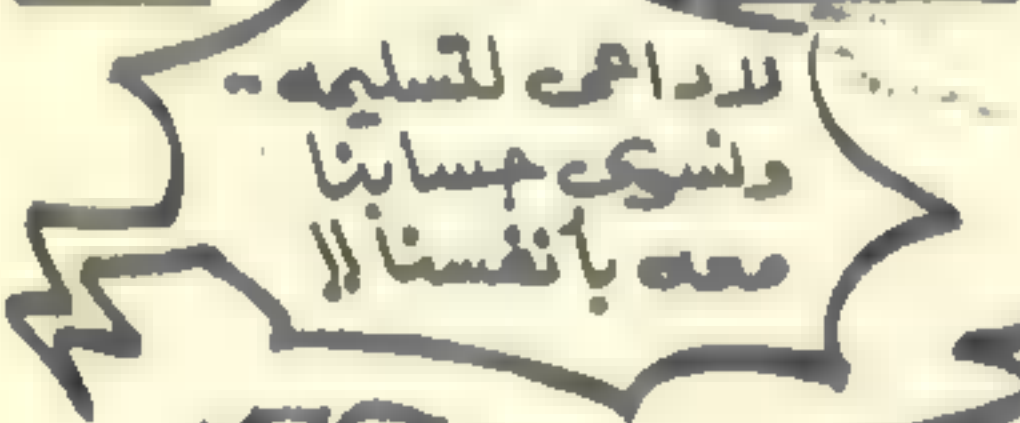 لا داعى لتسليمه -
ولنسوى حسابنا
معه بأنفسنا !!